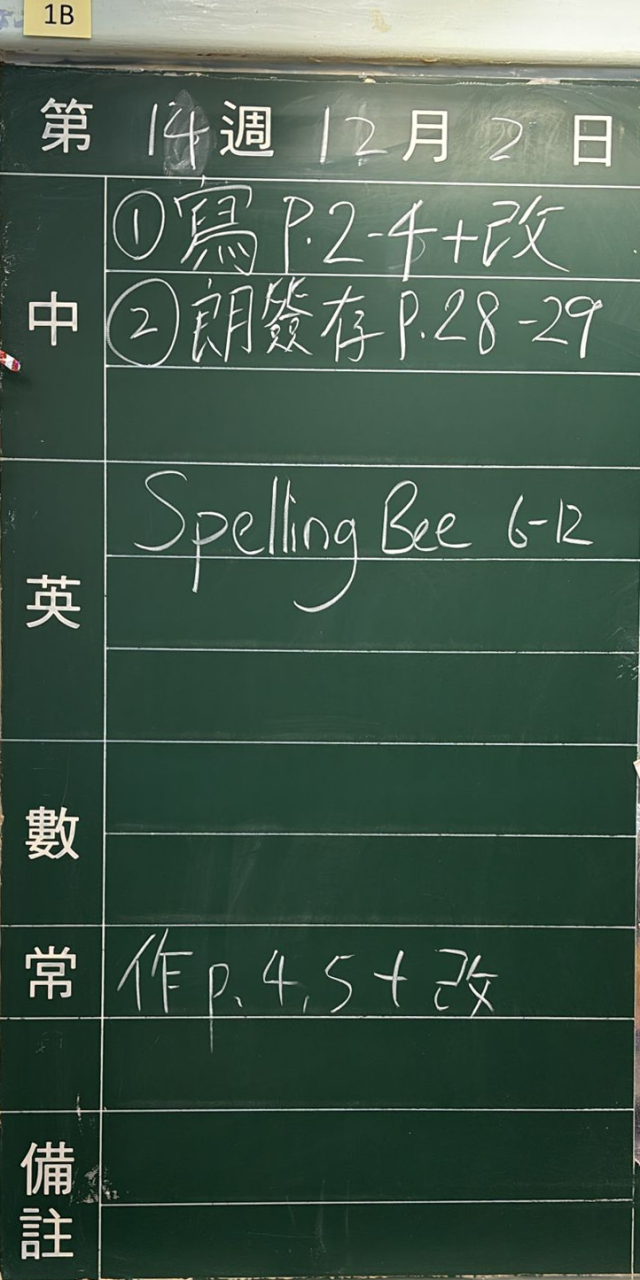 1B
第 14 週 12 月 2 日
中
① 寫 P.2-4+改
② 朗發存 P.28-29
英
Spelling Bee 6-12
數
常
作 p.4,5+改
備註